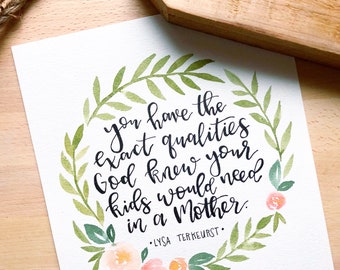 you have the
exact qualities
God knew your
kids would need
in a Mother.
· LYSA TERKEURST ·